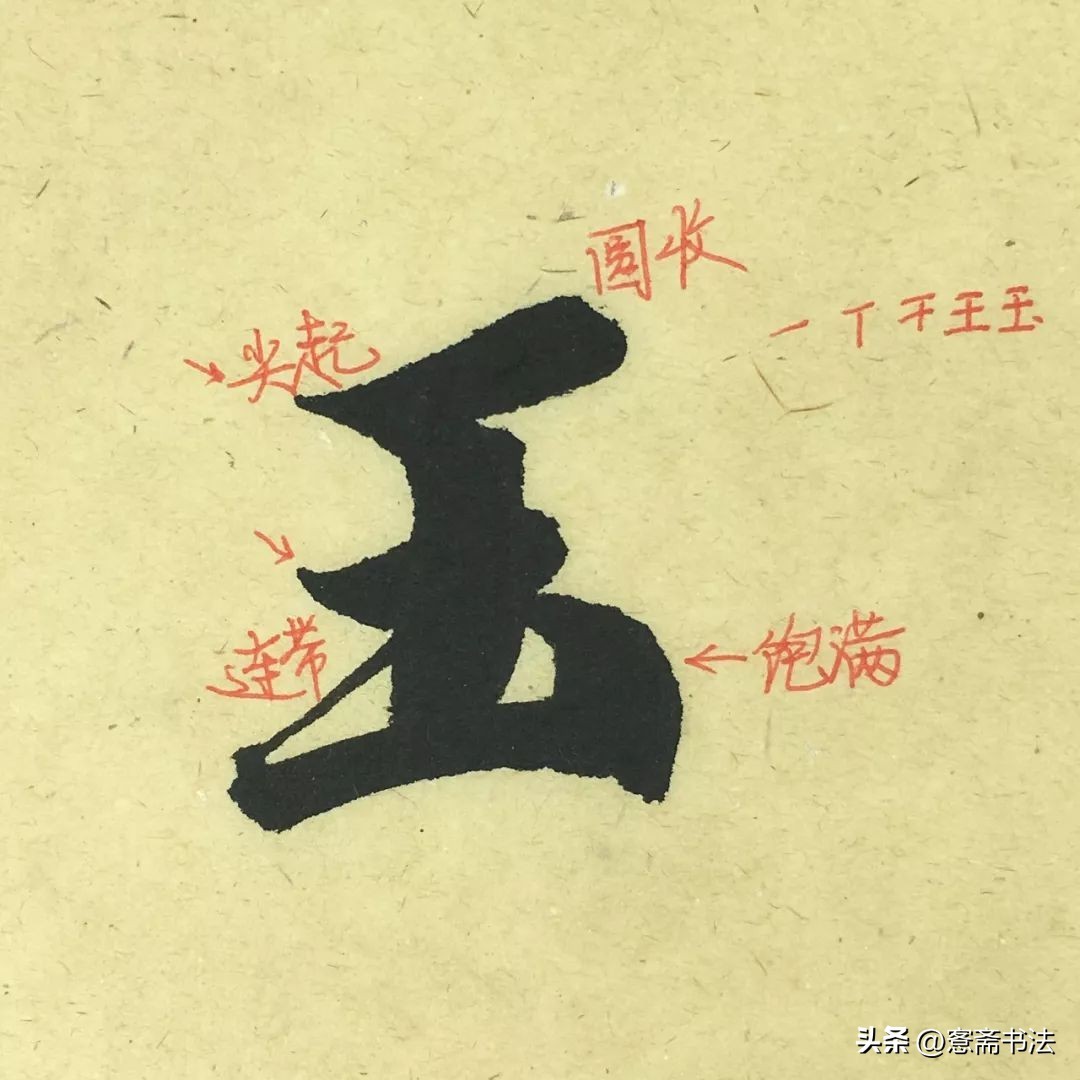 圆收
一丅干王玉
尖起
玉
连带
饱满
头条 @愙斋书法